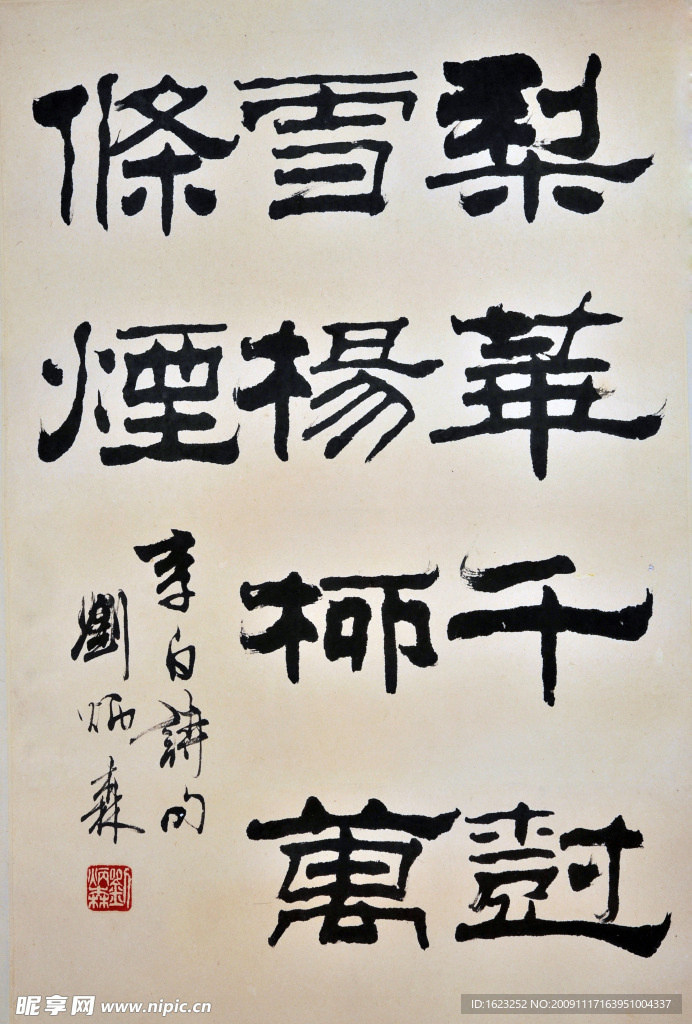 梨華千樹
雪楊柳萬
條煙
李白詩句
劉炳森
劉炳森
昵享网 www.nipic.cn
ID:1623252 NO:20091117163951004337